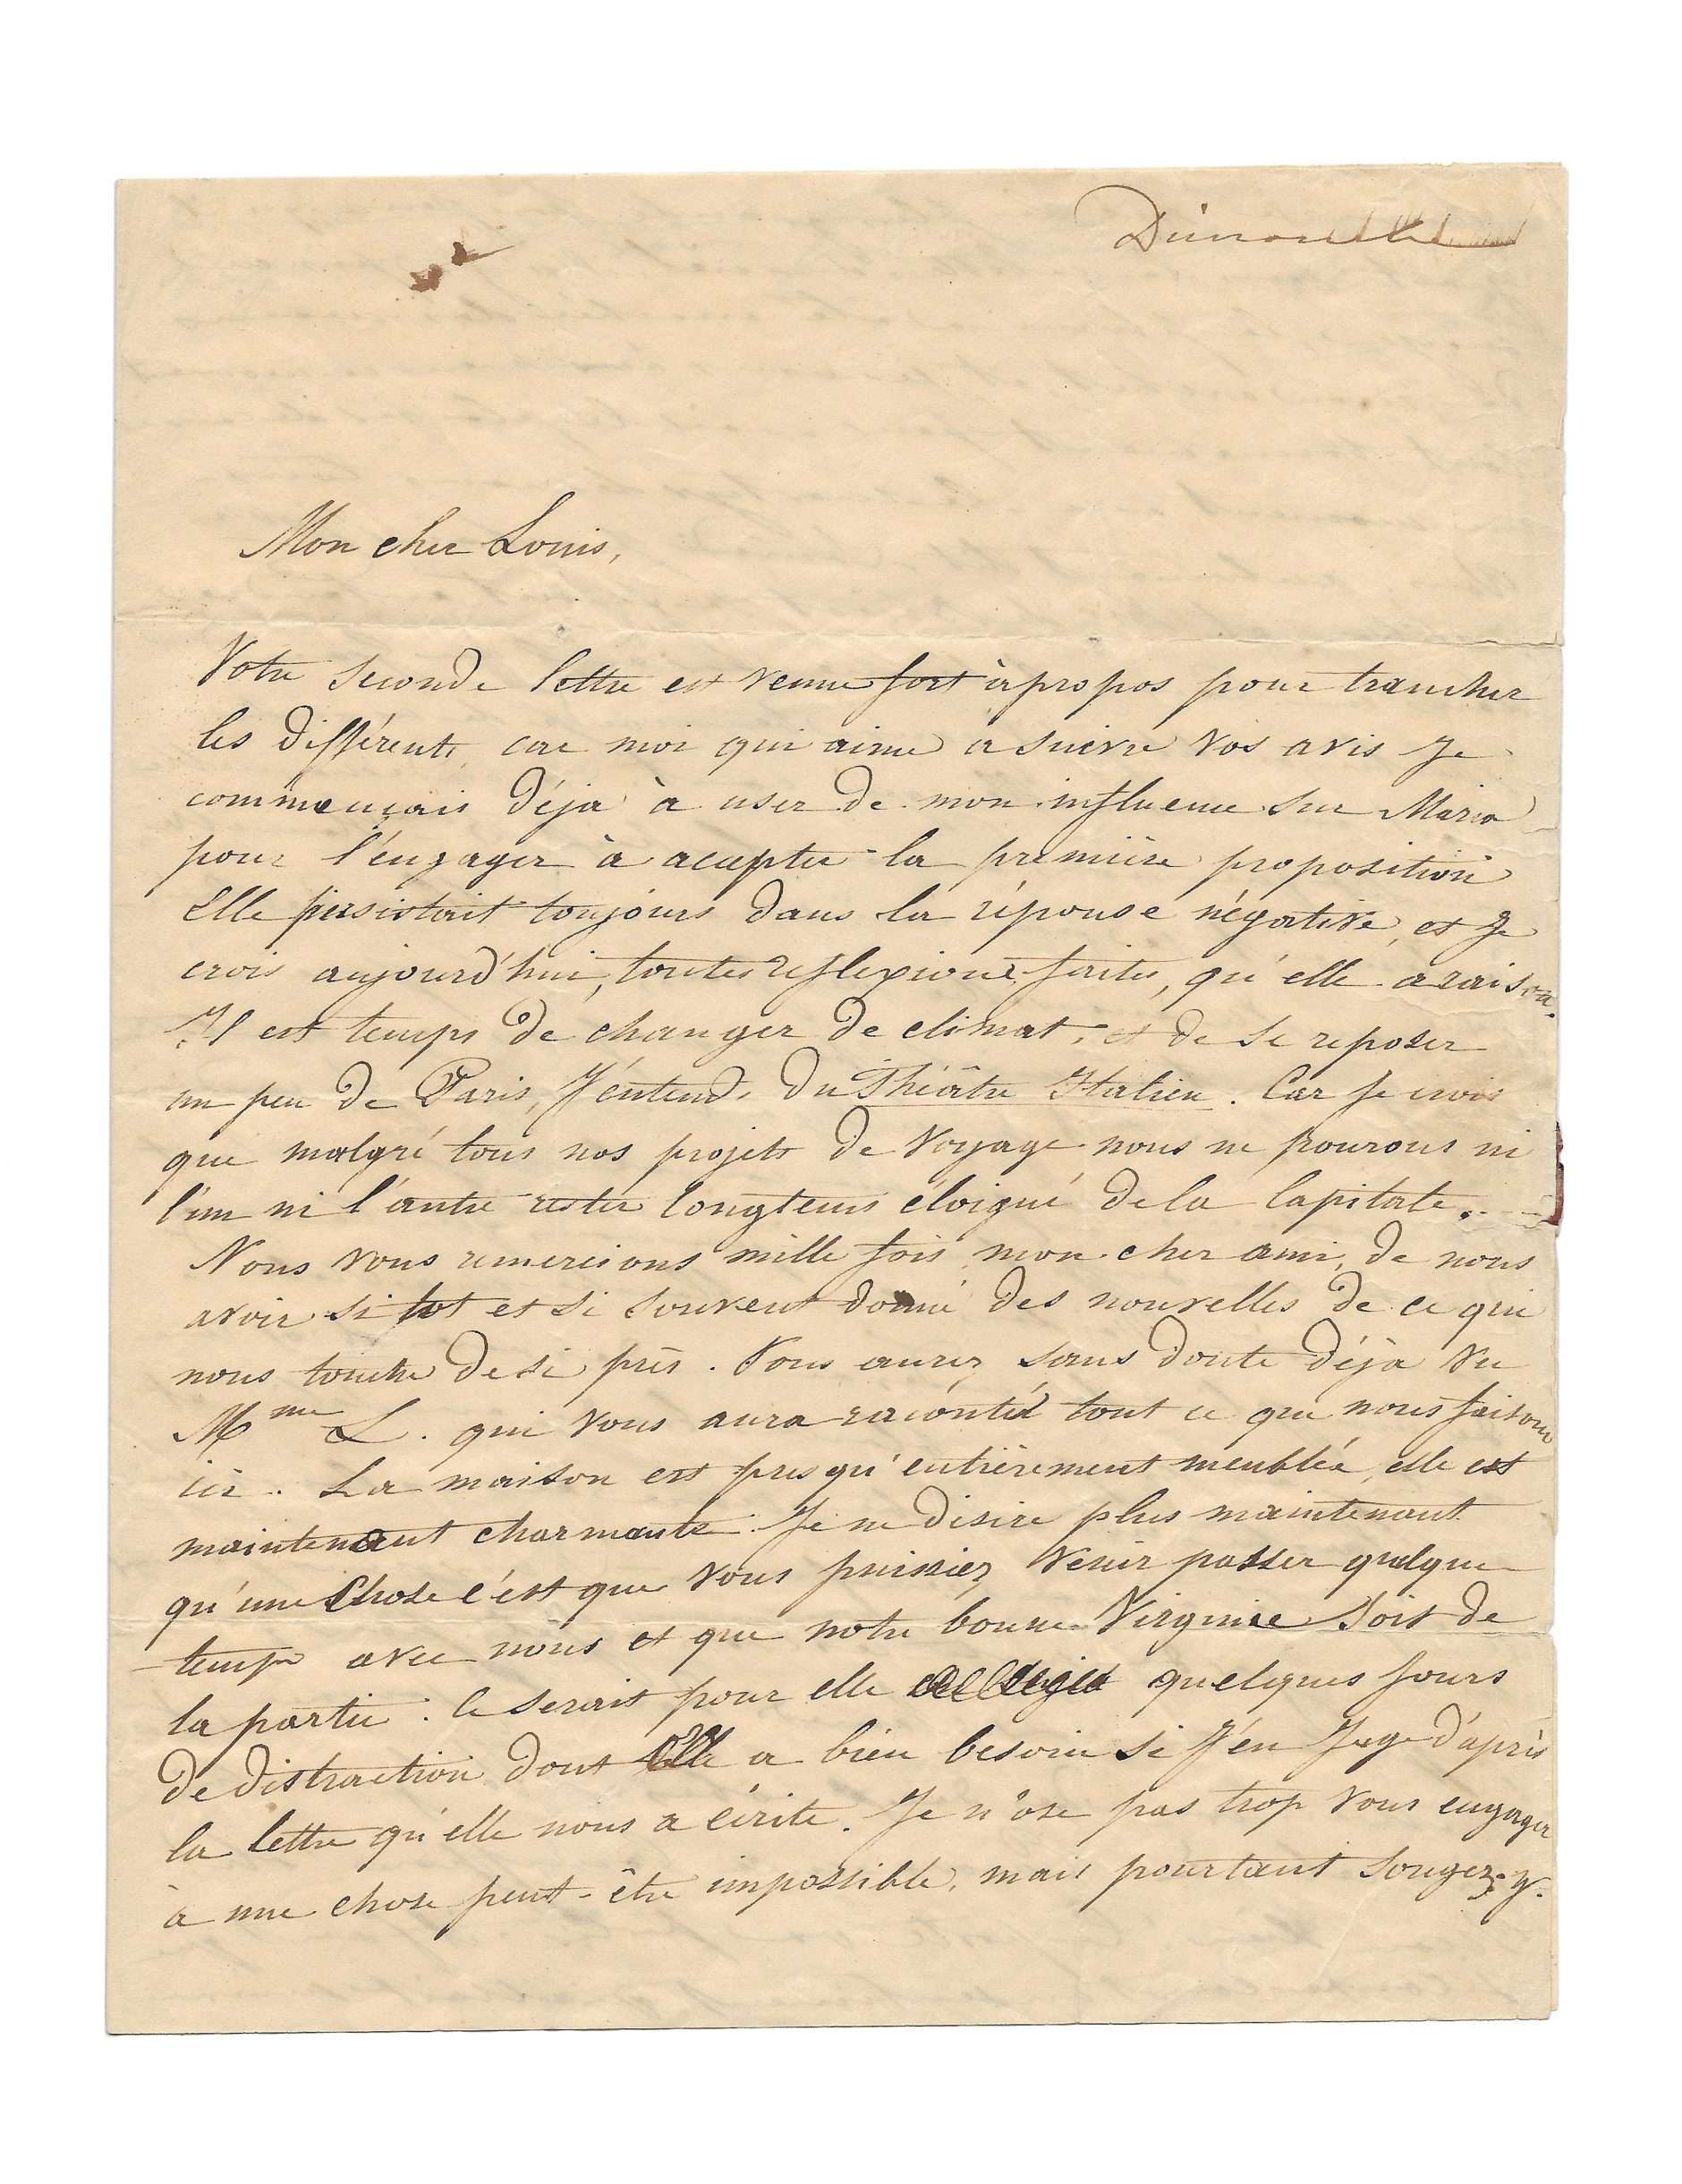 Mon cher Louis,
Votre seconde lettre est venue fort àpropos pour trancher
les différents, car moi qui aime a suivre vos avis Je
commençais déja à user de mon influence sur Mario
pour l'engager à accepter la première proposition
Elle persistait toujours dans la réponse négative, et Je
crois aujourd'hui, toutes reflexions faites, qu'elle a raison.
Il est temps de changer de climat, et de se reposer
un peu de Paris, J'entends du Théâtre Italien. Car Je crois
que malgré tous nos projets de voyage nous ne pourons ni
l'un ni l'autre rester longtems éloigné de la Capitale.
Nous vous remercions mille fois, mon cher ami, de nous
avoir si tot et si souvent donné des nouvelles de ce qui
nous touche de si près. Vous aurez sans doute déjà vu
Mme L. qui vous aura raconté tout ce que nous faisons
ici. La maison est presqu'entièrement meublée, elle est
maintenant charmante. Je ne désire plus maintenant
qu'une chose c'est que vous puissiez venir passer quelque
temps avec nous et que notre bonne Virginie soit de
la partie. Ce serait pour elle quelques Jours
de distraction dont elle a bien besoin si J'en Juge d'après
la lettre qu'elle nous a écrite. Je n'ose pas trop vous engager
à une chose peut-être impossible, mais pourtant songez-y.